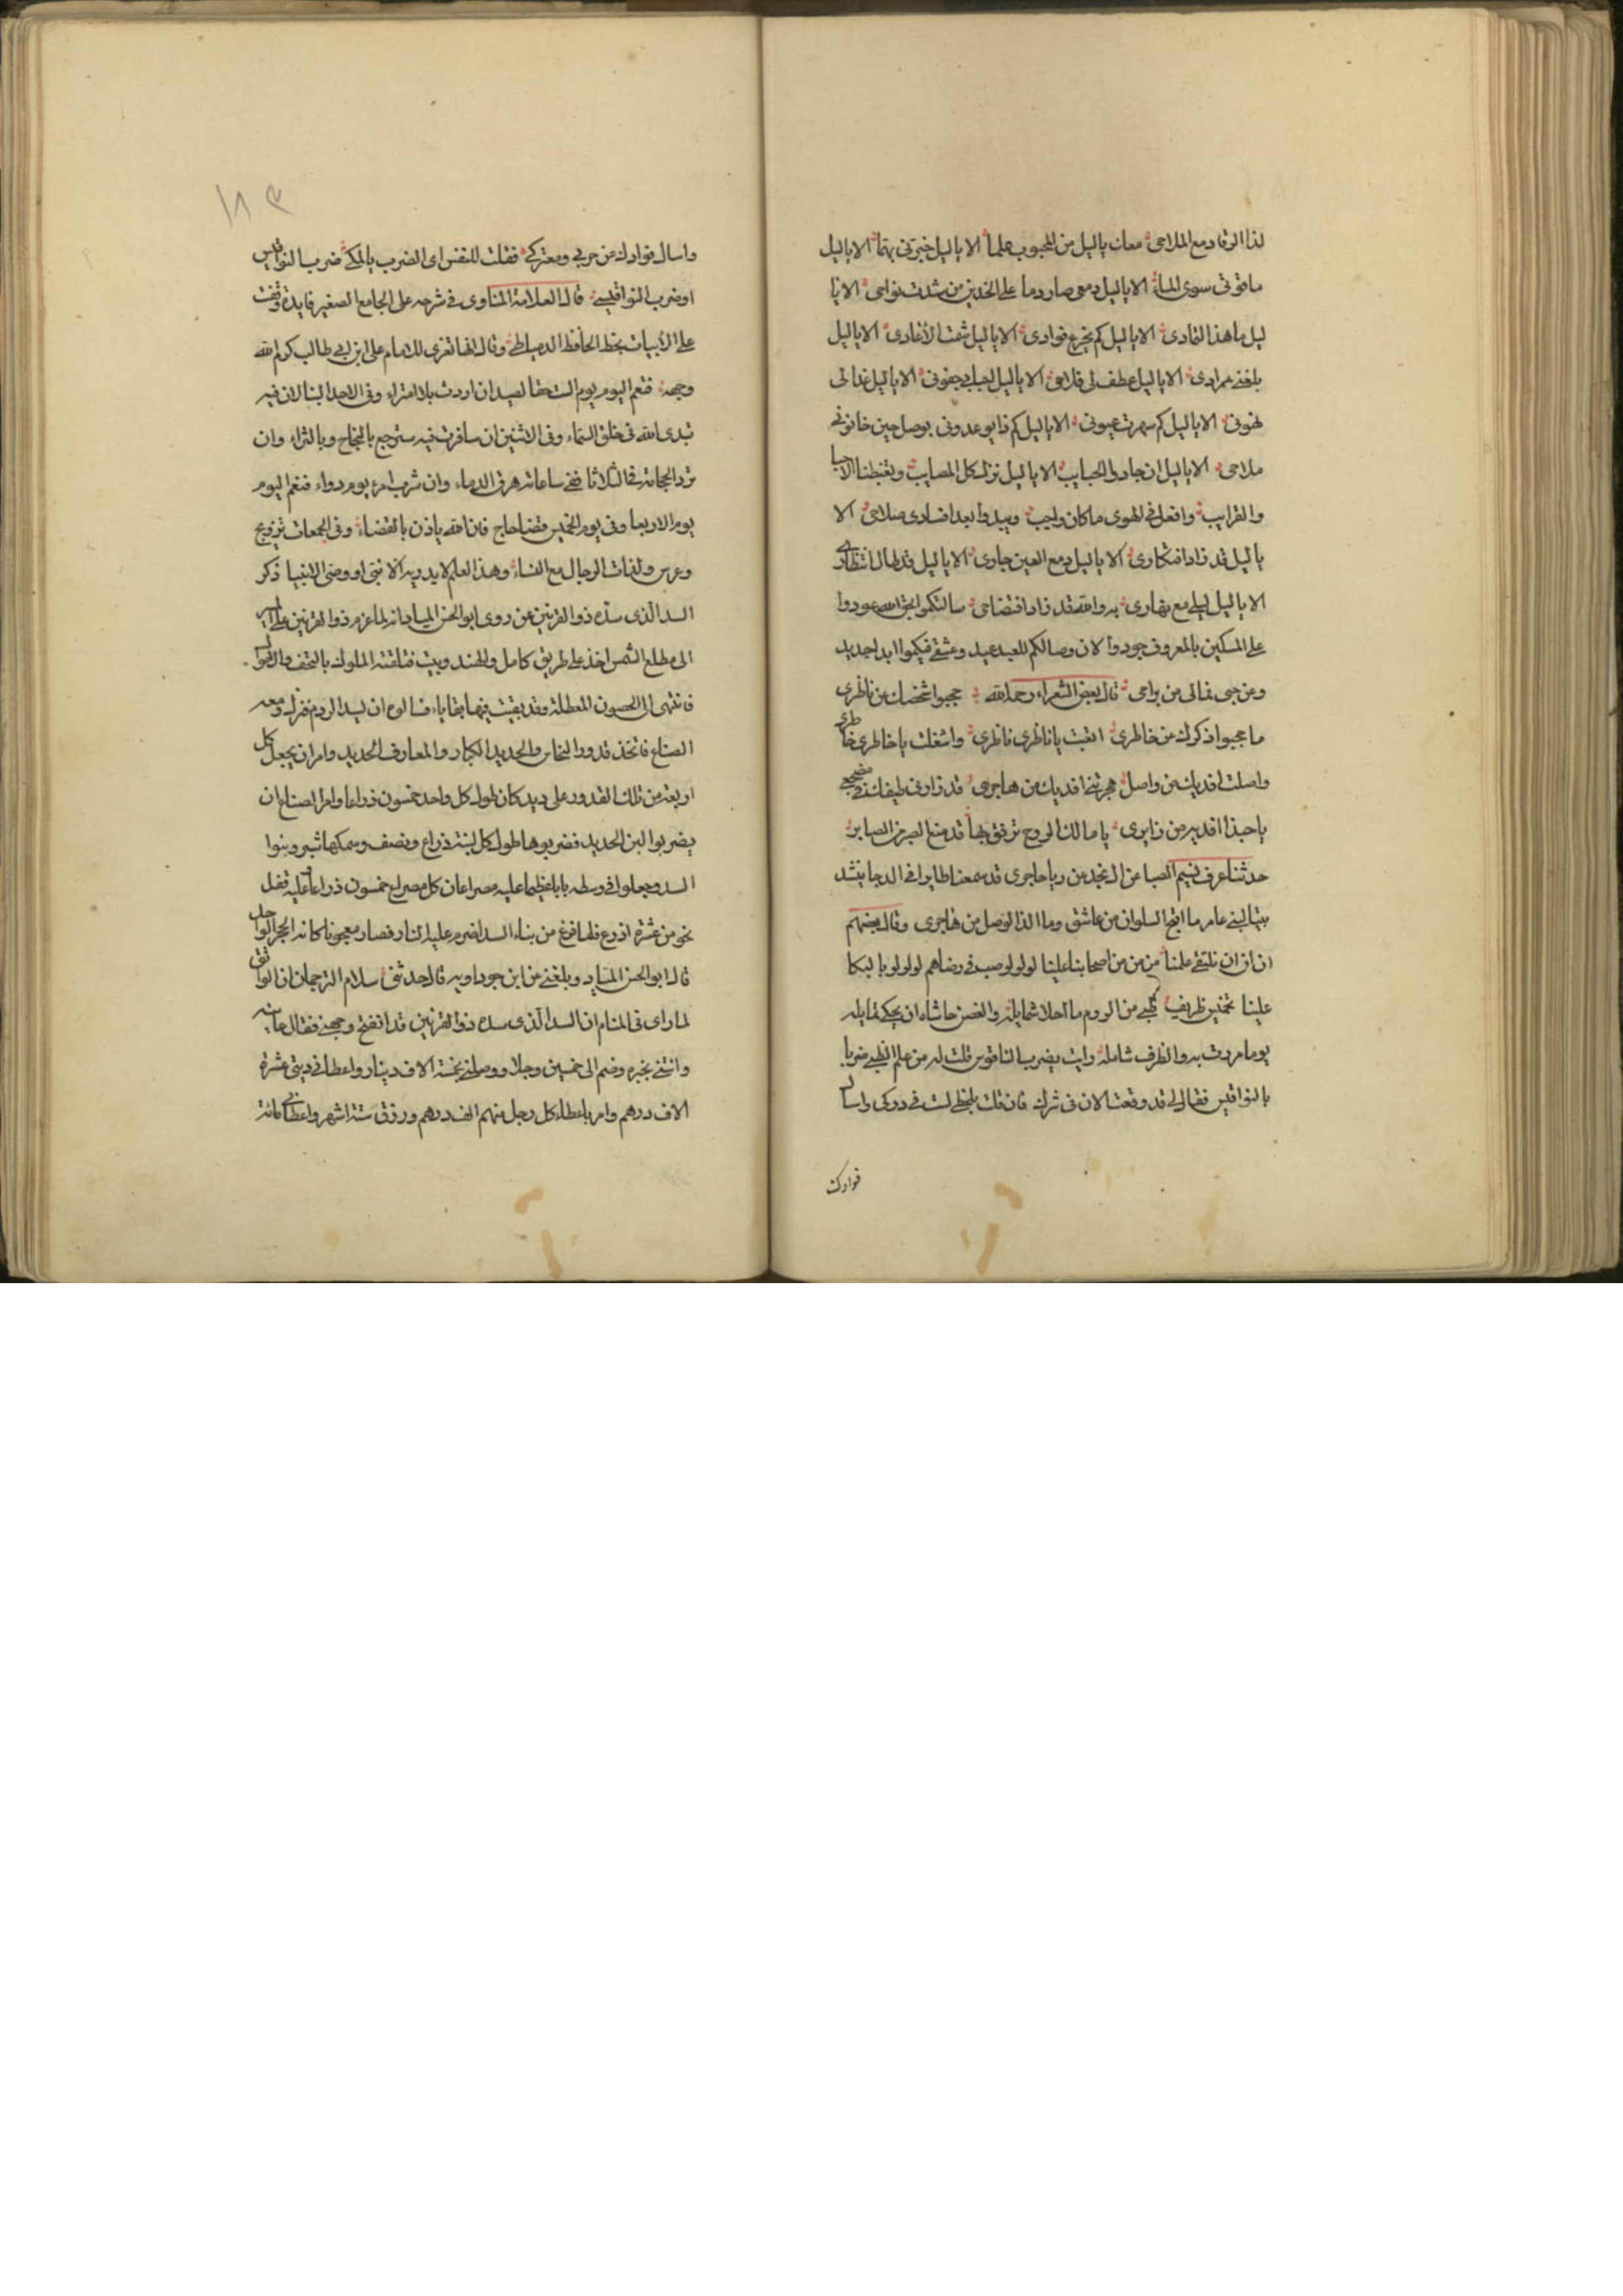 لذا الرقاد مع الملاحى معك ياليل من المحبوب علما الا ياليل خبرنى بهما الا ياليل
ما قوتى سوى الماء الا ياليل دمعى صار دما على الخدين من شدت نواحى الا يا
ليل ما هذا التمادى الا ياليل كم يجرع فوادى الا ياليل شمت الاعادى الا ياليل
بلغنى مرادى الا ياليل عطف لى فلاحى الا ياليل جفونى الا ياليل عذالى
الا ياليل كم سهرت عيونى الا ياليل كم ذا يوعدونى بوصل حين خانونى
ملاحى الا ياليل ان جاد لى الحبايب الا ياليل نزل كل المصايب وتغبطنا
والقرايب وافعل فى الهوى ما كان واجب ويبدوا بعد افسادى صلاحى الا
ياليل قد زاد افتكارى الا ياليل دمع العين جارى الا ياليل قد طال انتظارى
الا ياليل ليلى مع نهارى به والله قد زاد افتضاحى سالتكموا بحق الله عودوا
على المسكين بالمعروف جودوا لان وصالكم للعبد عيد وعشقى فيكموا ابدا جديد
وعن حبى فمالى من براحى قال بعض الشعراء رحمه الله حجبوا شخصك عن ناظرى
ما حجبوا ذكرك من خاطرى اتعبت ياناظرى ناظرى واشغلت ياخاطرى خاطرى
واصلتنى افديك من واصل هجرتنى افديك من هاجرى قد زارنى طيفك فى مضجعى
ياحبذا افديه من زايرى يا مالك الروح ترفق بها قد منع الصبر عن الصابر
حدثنا عرف نسيم الصبا عن ال نجد عن ربا حاجرى قد سمعنا طايرا فى الدجا ينشد
بيتا لبنى عامر ما اقبح السلوان من عاشق وما الذ الوصل من هاجرى وقال بعضهم
ان ان ان نلتقى علمنا من من من اصحابنا علينا لولولو صب فى رضاهم لولولو بالبكا
علينا تخمين ظريف ظبى من الروم ما احلا شمايله والغصن حاشاه ان يحكى تمايله
يوما مررت به والظرف شامله رايت يضرب الناقوس قلت له من علم الظبى ضربا
بالنواقيس فقال لى قد وقعت الان فى شركى فان قلت بلحظى لست فى دركى واسال
فوادك
١٨٣
واسال فوادك عن حربى ومعتركى فقلت للنفس اى الضرب يالمكى ضرب النواقيس
او ضرب النوى قيسى قال العلامة المناوى فى شرحه على الجامع الصغير فايدة وقفت
على ابيات بخط الحافظ الدمياطى وقال انها تعزى للامام على ابن ابى طالب كرم الله
وجهه فنعم اليوم يوم السبت حقا لصيد ان اردت بلا امتراء وفى الاحد البنا لان فيه
تبدى الله فى خلق السماء وفى الاثنين ان سافرت فيه سترجع بالنجاح وبالثراء وان
ترد الحجامة فالثلاثا ففى ساعاته هرق الدماء وان شرب امرء يوم دواء فنعم اليوم
يوم الاربعا وفى يوم الخميس قضا حاج فان الله ياذن بالقضاء وفى الجمعات تزويج
وعرس ولذات الرجال مع النساء وهذا العلم لا يدريه الا نبى او وصى الانبيا ذكر
السد الذى سده ذو القرنين عن روى ابو الحسن الميادانه لما عزم ذو القرنين على
الى مطلع الشمس اخذ على طريق كامل والهند وتبت فتلقته الملوك بالتحف والاموال
فانتهى الى الحصون المعطلة وقد بقيت فيها بقايا فسالوه ان يسد الردم فنزل ومعه
الصناع فاتخذ قدور النحاس والحديد الكبار والمعارف الحديد وامر ان يجعل كل
اربعة من تلك القدور على ديد كان طول كل واحد خمسون ذراعا وامر الصناع ان
يضربوا لبن الحديد فضربوها طول كل لبنة ذراع ونصف وسمكها شبر وبنوا
السد وجعلوا فى وسطه بابا عظيما عليه مصراعان كل مصراع خمسون ذراعا وعليه قفل
نحو من عشرة اذرع فلما فرغ من بناء السد اضرم عليه النار فصار معجونا كانه الحجر الواحد
قال ابو الحسن المياد وبلغنى عن ابن جوداويه قال حدثنى سلام الترجمان ان الواثق
لما راى فى المنام ان السد الذى سده ذو القرنين قد انفتح وجهنى فقال عاينه
وائتنى بخبره وضم الى خمسين رجلا ووصلنى بخمسة الاف دينار واعطانى ديتى عشرة
الاف درهم وامر باعطاء كل رجل منهم الف درهم ورزق ستة اشهر واعطانى مائة